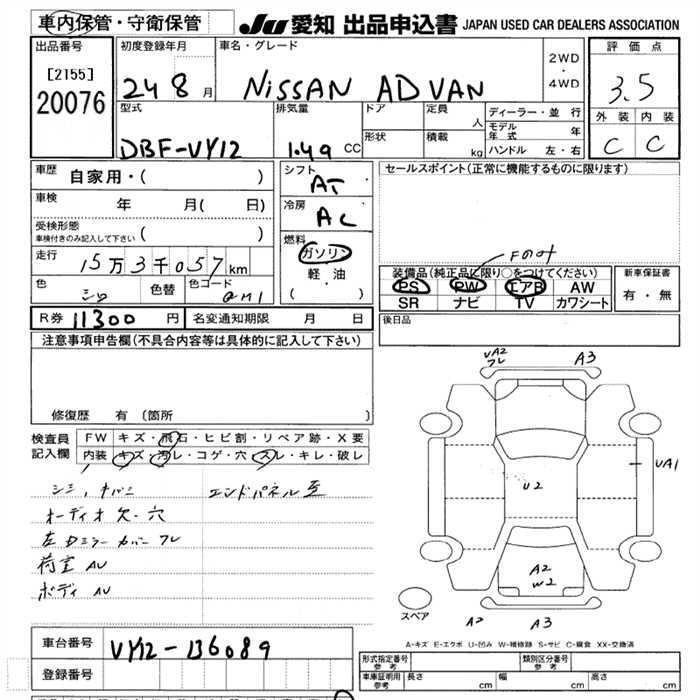 車内保管・守衛保管
JU 愛知 出品申込書 JAPAN USED CAR DEALERS ASSOCIATION
出品番号
[2155]
20076
初度登録年月
24 8 月
車名・グレード
NISSAN AD VAN
2WD
・
4WD
評価点
3.5
外装 内装
C C
型式
DBF-VY12
排気量
1.49 CC
ドア
形状
定員
人
積載
kg
ディーラー・並行
モデル年式 年
ハンドル 左・右
車歴
自家用・( )
車検
年 月( 日)
受検形態
車検付きのみ記入して下さい ( )
走行
15万3千057km
色
シロ
色替
色コード
シフト
AT
冷房
AC
燃料
ガソリン
軽油
( ・ )
セールスポイント(正常に機能するものに限ります)
Fのみ
装備品(純正品に限り○をつけてください)
PS PW エアB AW
SR ナビ TV カワシート
新車保証書
有・無
後日品
R券 11300 円
名変通知期限 月 日
注意事項申告欄(不具合内容等は具体的に記入して下さい)
修復歴 有(箇所 )
検査員
記入欄
FW キズ・飛石・ヒビ割・リペア跡・X要
内装 キズ・汚レ・コゲ・穴・スレ・キレ・破レ
シミ、
エンドパネル歪
オーディオ欠・穴
左Dミラーカバーワレ
荷室AU
ボディAU
UA2
ワレ
A3
UA1
U2
A2
W2
A2
A3
スペア
A-キズ E-エクボ U-凹み W-補修跡 S-サビ C-腐食 XX-交換済
車台番号
VY12-136089
登録番号
形式指定番号
参考
類別区分番号
参考
車庫証明用
参考
長さ cm
幅 cm
高さ cm